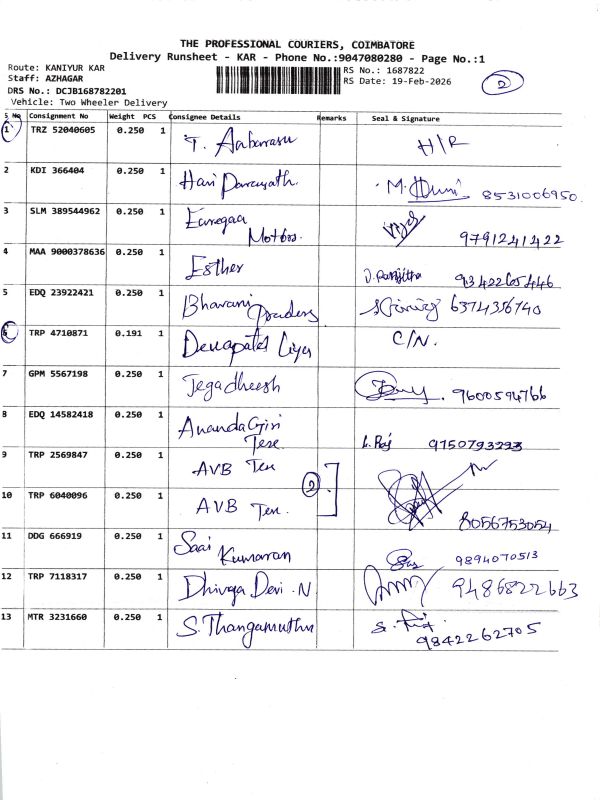 THE PROFESSIONAL COURIERS, COIMBATORE
Delivery Runsheet - KAR - Phone No.:9047080280 - Page No.:1
Route: KANIYUR KAR
Staff: AZHAGAR
DRS No.: DCJB168782201
Vehicle: Two Wheeler Delivery
RS No.: 1687822
RS Date: 19-Feb-2026
2
S No Consignment No Weight PCS Consignee Details Remarks Seal & Signature
1 TRZ 52040605 0.250 1 T. H/R
2 KDI 366404 0.250 1 Hari M. 8531006950.
3 SLM 389544962 0.250 1 Motors. 9791241422
4 MAA 9000378636 0.250 1 Esther D. Ranjitha
5 EDQ 23922421 0.250 1 Bhavani Traders 6374356740
6 TRP 4710871 0.191 1 C/N.
7 GPM 5567198 0.250 1 Jegadheesh 9600594766
8 EDQ 14582418 0.250 1 AnandaGiri L. Raj 9750793293
9 TRP 2569847 0.250 1 AVB Tex
2
10 TRP 6040096 0.250 1 AVB Tex. 8056753054
11 DDG 666919 0.250 1 Saai Kumaran 9894070513
12 TRP 7118317 0.250 1 Dhivya Devi .N 9486822663
13 MTR 3231660 0.250 1 S. Thangamuthu 9842262705